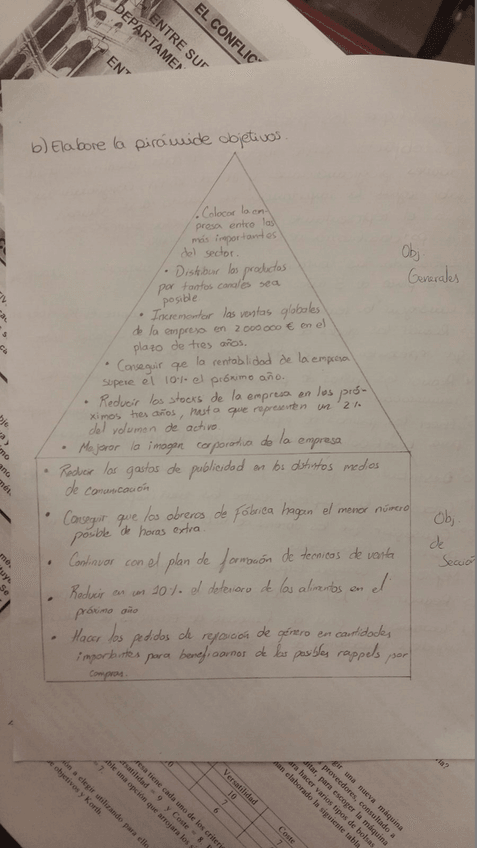 EL CONFLIC
ENTRE SUP
DEPARTAMEN
ENT
b) Elabore la pirámide objetivos.
• Colocar la em
presa entre las
más importantes
del sector.
• Distribuir los productos
por tantos canales sea
posible
• Incrementar las ventas globales
de la empresa en 2000000 € en el
plazo de tres años.
• Conseguir que la rentabilidad de la empresa
supere el 10% el próximo año.
• Reducir los stocks de la empresa en los pró-
ximos tres años, hasta que representen un 2%
del volumen de activo.
• Mejorar la imagen corporativa de la empresa
Obj
Generales
• Reducir los gastos de publicidad en los distintos medios
de comunicación
• Conseguir que los obreros de fábrica hagan el menor número
posible de horas extra.
• Continuar con el plan de formación de tecnicas de venta
• Reducir en un 10% el deterioro de los alimentos en el
próximo año
• Hacer los pedidos de reposición de género en cantidades
importantes para beneficiarnos de los posibles rappels por
compras.
Obj
de
Sección
Versatilidad
10
7
6
Coste
7
gir una nueva máquina
proveedores, consultado a
para escoger la máquina
para hacer varios tipos de bolsas
han elaborado la siguiente tabla